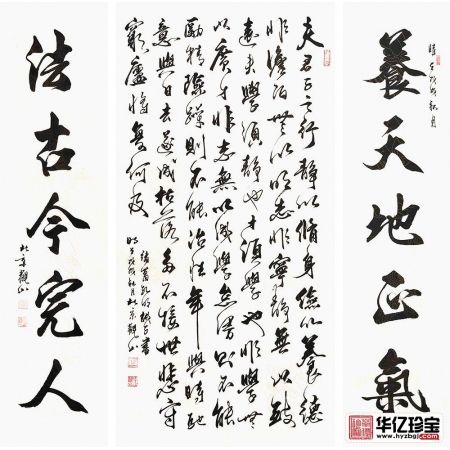 養天地正氣
時在戊戌秋月
夫君子之行静以脩身儉以養德
非澹泊無以明志非寧静無以致
遠夫學須静也才須學也非學無
以廣才非志無以成學怠慢則不能
励精險躁則不能冶性年與時馳
意與日去遂成枯落多不接世悲守
窮廬將復何及
諸葛孔明誡子書
時在戊戌秋月北京觀
法古今完人
北京觀
华亿珍宝
www.hyzbgj.com